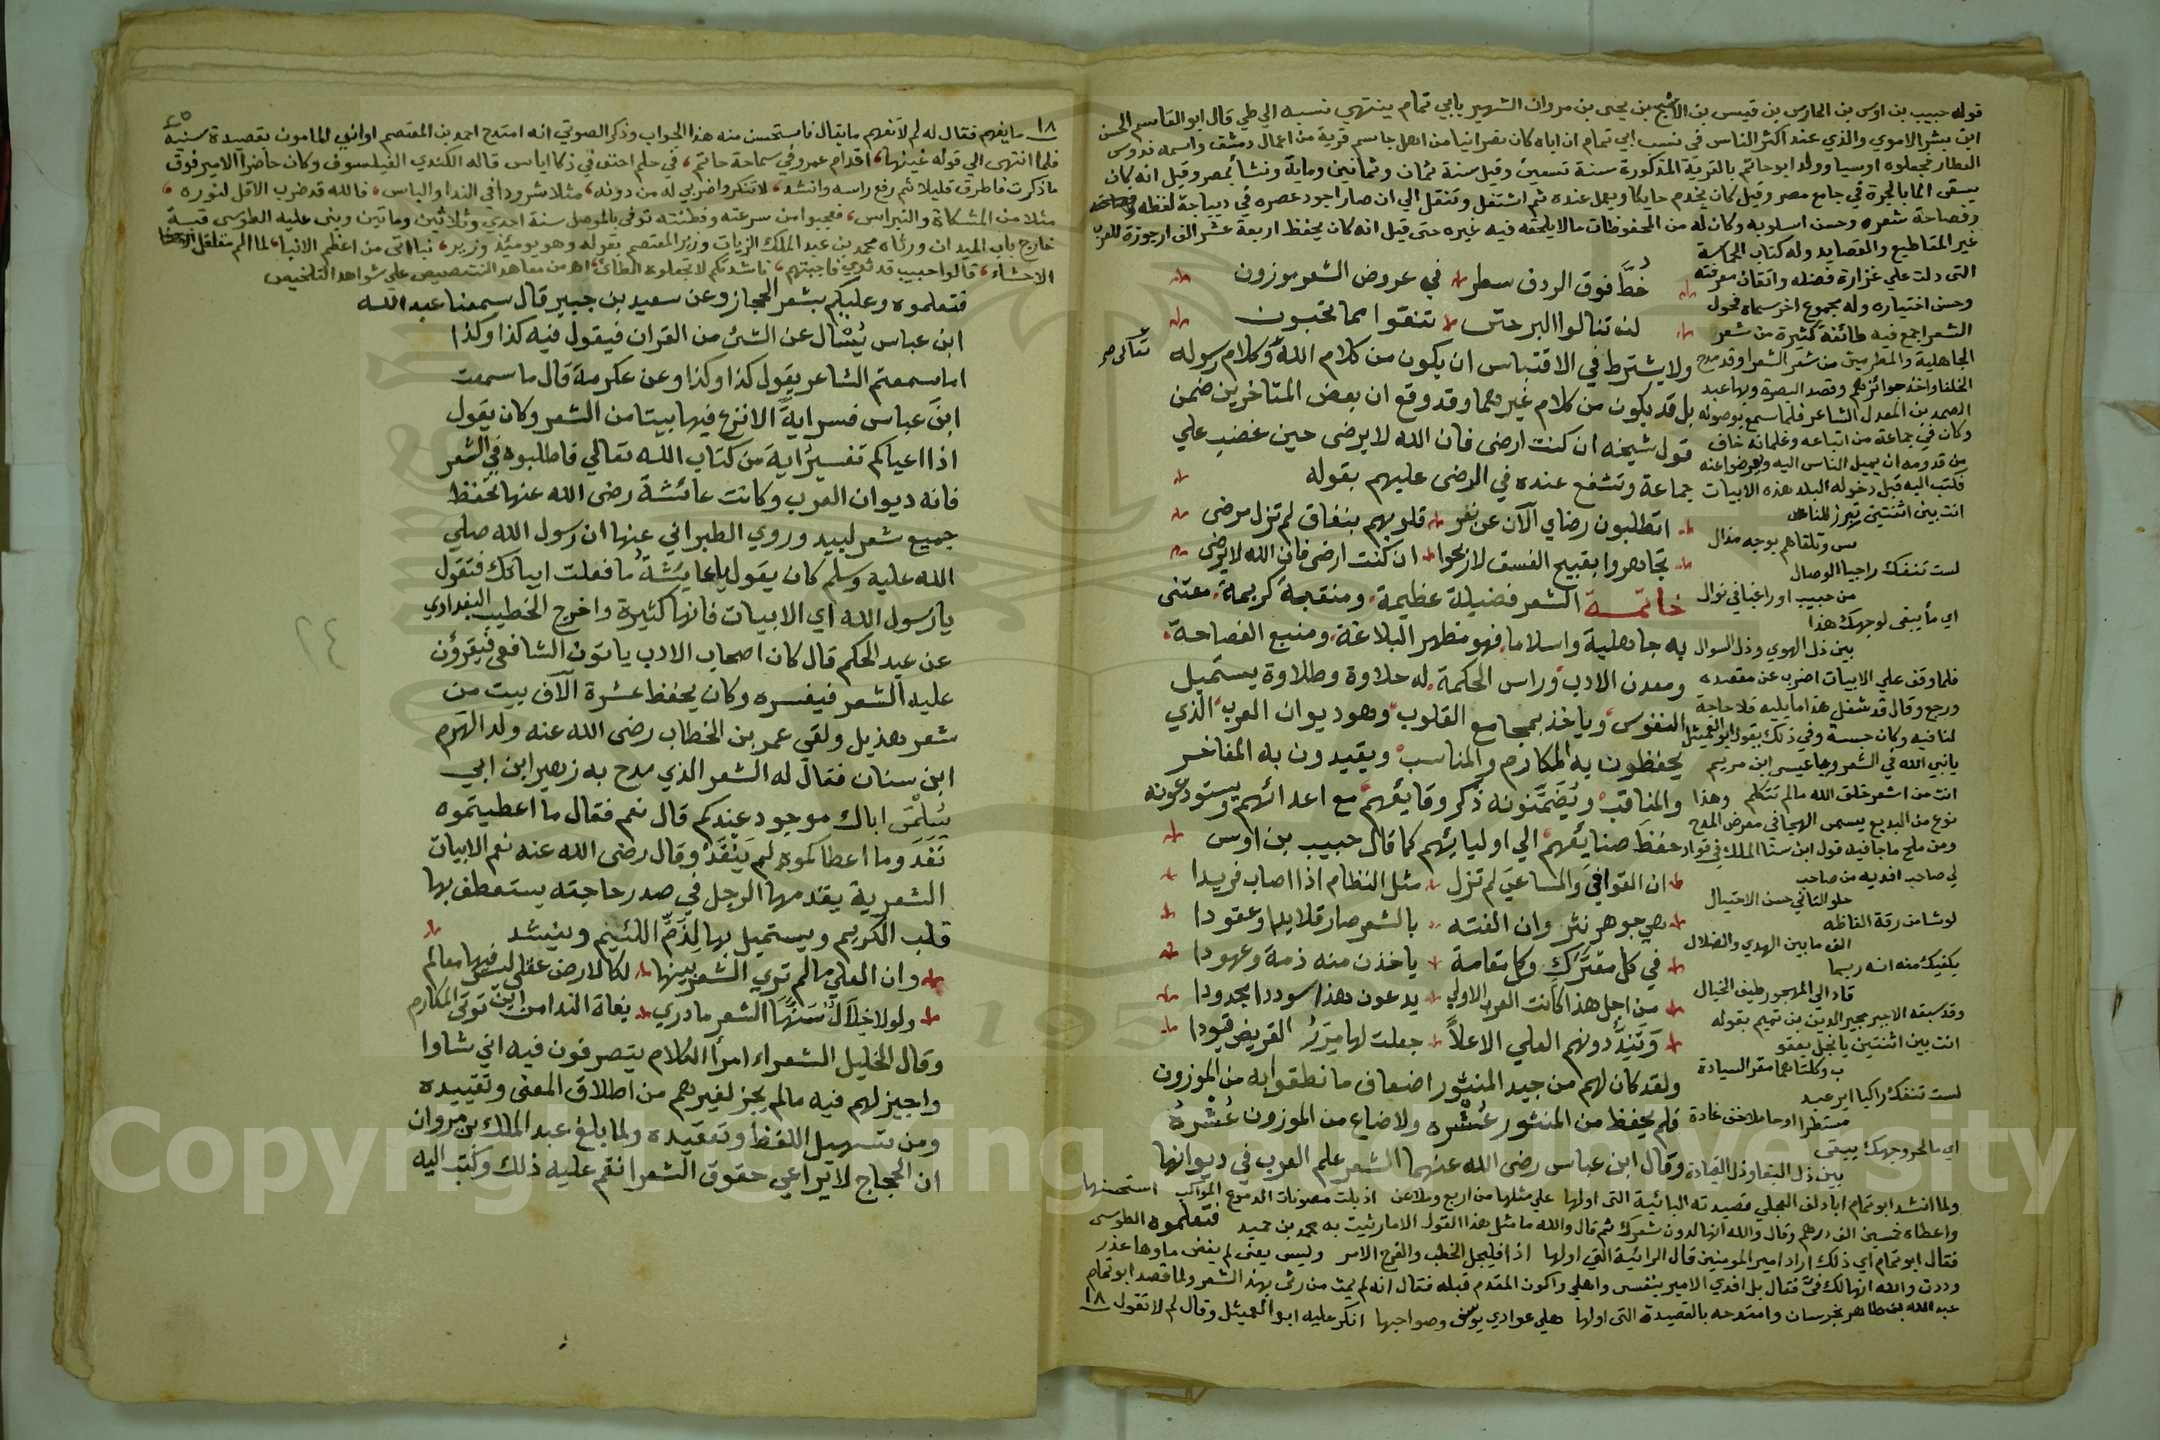 قوله حبيب بن اوس بن الحارس بن قيس بن الاشج بن يحيى بن مروان الشهير بابي تمام ينتهي نسبه الي طي قال ابو القاسم الحسن
ابن بشر الاموي والذي عند اكثر الناس في نسب ابي تمام ان اباه كان نصرانيا من اهل جاسم قرية من اعمال دمشق واسمه ندوس
العطار فجعلوه اوسيا وولد ابو حاتم بالقرية المذكورة سنة تسعين وقيل سنة ثمان وثمانين وماية ونشا بمصر وقيل انه كان
يسقى الما بالجرة في جامع مصر وقيل كان يخدم حايكا ويعمل عنده ثم اشتغل وتنقل الي ان صار اجود عصره في ديباجة لفظه
وفصاحة شعره وحسن اسلوبه وكان له من المحفوظات ما لا يلحقه فيه غيره حتى قيل انه كان يحفظ اربعة عشر الف ارجوزة للعرب
غير المقاطيع والقصايد وله كتاب الحماسة
التى دلت علي غزارة فضله واتقان معرفته
وحسن اختياره وله مجموع اخر سماه فحول
الشعرا جمع فيه طائفة كثيرة من شعر
الجاهلية والمخضرمين من شعر الشعرا وقد مدح
الخلفا واخذ جوائزهم وقصد البصرة وبها عبد
الصمد بن المعدل الشاعر فلما سمع بوصوله
وكان في جماعة من اتباعه وغلمانه خاف
من قدومه ان يميل الناس اليه ويعرضوا عنه
فكتب اليه قبل دخوله البلد هذه الابيات
انت بين اثنتين تبرز للناس
وتلقاهم بوجه مذال
لست تنفك راجيا الوصال
من حبيب او راغبا في نوال
اي ما يبقى لوجهك هذا
بين ذل الهوي وذل السوال
فلما وقف علي الابيات اضرب عن مقصده
ورجع وقال قد شغل هذا ما يليه فلا حاجة
لنا فيه
يا نبي الله في الشعر ويا عيسى ابن مريم
انت من اشعر خلق الله مالم تتكلم وهذا
نوع من البديع يسمى الهجا في معرض المدح
ومن ملح ما جا فيه قول ابن سنا الملك في قواد
لي صاحب افديه من صاحب
حلو التاني حسن الاحتيال
لو شا من رقة الفاظه
الف ما بين الهدي والضلال
يكفيك منه انه ربما
قاد الي المهجور طيف الخيال
وقد سبقه الاجير مجير الدين بن تميم بقوله
انت بين اثنتين يا نجل يعقو
ب وكلتاهما مقر السيادة
لست تنفك راكبا اير عبد
مستطيرا او حاملا خف غادة
اي ما لحر وجهك يبقى
بين ذل البغا وذل القيادة
خُطَّ فوق الردف سطر في عروض الشعر موزون
لن تنالوا البر حتى تنفقوا مما تحبون
ولا يشترط في الاقتباس ان يكون من كلام الله وكلام رسوله تعالى صح
بل قد يكون من كلام غيرهما وقد وقع ان بعض المتاخرين ضمن
قول شيخه ان كنت ارضى فان الله لا يرضى حين غضب علي
جماعة وتشفع عنده في الرضى عليهم بقوله
اتطلبون رضاي الآن عن نفر قلوبهم بنفاق لم تزل مرضى
تجاهروا بقبيح الفسق لا رعوا ان كنت ارضى فان الله لا يرضى
خاتمة الشعر فضيلة عظيمة ومنقبة كريمة معتنى
به جاهلية واسلاما فهو مظهر البلاغة ومنبع الفصاحة
ومعدن الادب وراس الحكمة له حلاوة وطلاوة يستميل
النفوس وياخذ بمجامع القلوب وهو ديوان العرب الذي
يحفظون به المكارم والمناسب ويقيدون به المفاخر
والمناقب ويُضَمِّنونه ذكر وقايعهم مع اعدائهم ويستودعونه
حفظ صنايعهم الي اوليائهم كما قال حبيب بن اوس
ان القوافي والمساعي لم تزل مثل النظام اذا اصاب فريدا
هي جوهر نثر وان الفته بالشعر صار قلايدا وعقودا
في كل معترك وكل مقامة ياخذن منه ذمة وعهودا
من اجل هذا كانت العرب الاولي يدعون هذا سوددا مجدودا
وَتَنِدُّ دونهم العلي الا علاً جعلت لها مِرَرُ القريض قيودا
ولقد كان لهم من جيد المنثور اضعاف ما نطقوا به من الموزون
فلم يحفظ من المنثور عُشْره ولا ضاع من الموزون عُشْره
وقال ابن عباس رضى الله عنهما الشعر علم العرب في ديوانها
فتعلموه
ولما انشد ابو تمام ابا دلف العجلي قصيدته البائية التى اولها علي مثلها من اربع وملاعن اذيلت مصونات الدموع السواكب استحسنها
واعطاه خمسين الف درهم وقال والله انها لدون شعرك ثم قال والله ما مثل هذا القول الا ما رثيت به محمد بن حميد الطوسي
فقال ابو تمام اي ذلك اراد امير المومنين قال الرائية التي اولها اذا فليجل الخطب والفرح الامر وليس يعنى لم يفض ماوها عذر
وددت والله انها لك فيَّ فقال بل افدي الامير بنفسى واهلي واكون المقدم قبله فقال انه لم يمت من رثى بهذ الشعر ولما قصد ابو تمام
عبد الله بن طاهر بخرسان وامتدحه بالقصيدة التى اولها هلي عوادي يوسف وصواحبها انكر عليه ابو العميثل وقال لم لا تقول ١٨
٤٥
١٨ ما يفهم فقال له لم لا تفهم ما يقال فاستحسن منه هذا الجواب وذكر الصوتي انه امتدح احمد بن المعتصم او ابن المامون بقصيدة سنية
فلما انتهى الي قوله فيها اقدام عمرو في سماحة حاتم في حلم احنف في ذكا اياس قاله الكندي الفيلسوف وكان حاضرا الامير فوق
ما ذكرت فاطرق قليلا ثم رفع راسه وانشد لا تنكروا ضربي له من دونه مثلا شرودا في الندا والباس فالله قد ضرب الاقل لنوره
مثلا من المشكاة والنبراس فعجبوا من سرعته وفطنته توفى بالموصل سنة احدي وثلاثين وماتين وبنى عليه الطوسى قبة
خارج باب الميدان ورثاه محمد بن عبد الملك الزيات وزير المعتصم بقوله وهو يومئذ وزير نبا اتى من اعظم الانبا لما الم مقلقل الاحشا
الاحشاء قالوا حبيب قد ثوي فاجبتهم ناشدتكم لا تجعلوه الطائ اه من معاهد التنصيص علي شواهد التلخيص
فتعلموه وعليكم بشعر الحجاز وعن سعيد بن جبير قال سمعنا عبد الله
ابن عباس يُسْأل عن الشئ من القران فيقول فيه كذا وكذا
اما سمعتم الشاعر يقول كذا وكذا وعن عكرمة قال ما سمعت
ابن عباس فسر ايةً الا نزع فيها بيتا من الشعر وكان يقول
اذا اعياكم تفسير اية من كتاب الله تعالي فاطلبوه في الشعر
فانه ديوان العرب وكانت عائشة رضى الله عنها تحفظ
جميع شعر لبيد وروي الطبراني عنها ان رسول الله صلي
الله عليه وسلم كان يقول يا عايشة ما فعلت ابياتك فتقول
يا رسول الله اي الابيات فانها كثيرة واخرج الخطيب البغدادي
عن عبد الحكم قال كان اصحاب الادب ياتون الشافعي فيقرؤن
عليه الشعر فيفسره وكان يحفظ عشرة الآف بيت من
شعر هذيل ولقى عمر بن الخطاب رضى الله عنه ولد الهرم
ابن سنان فقال له الشعر الذي مدح به زهير ابن ابي
سُلْمَى اباك موجود عندكم قال نعم فقال ما اعطيتموه
نَفَدَ وما اعطاكموه لم يَنْفَدْ وقال رضى الله عنه نعم الابيات
الشعرية يقدمها الرجل في صدر حاجته يستعطف بها
قلب الكريم ويستميل بها لِذَمّ اللئيم وينشد
وان العلي مالم تري الشعر بينها لكا لارض غفلا ليس فيها معالم
ولولا خلال سَنَّهَا الشعر ما دري بغاة الندا من اين توتى المكارم
وقال الخليل الشعراء امرأ الكلام يتصرفون فيه اني شاوا
واجيز لهم فيه مالم يجز لغيرهم من اطلاق المعنى وتقييده
ومن تسهيل اللفظ وتعقيده ولما بلغ عبد الملك بن مروان
ان الحجاج لا يراعي حقوق الشعرا نقم عليه ذلك وكتب اليه
٢٤
Copyright © King Saud University
1957